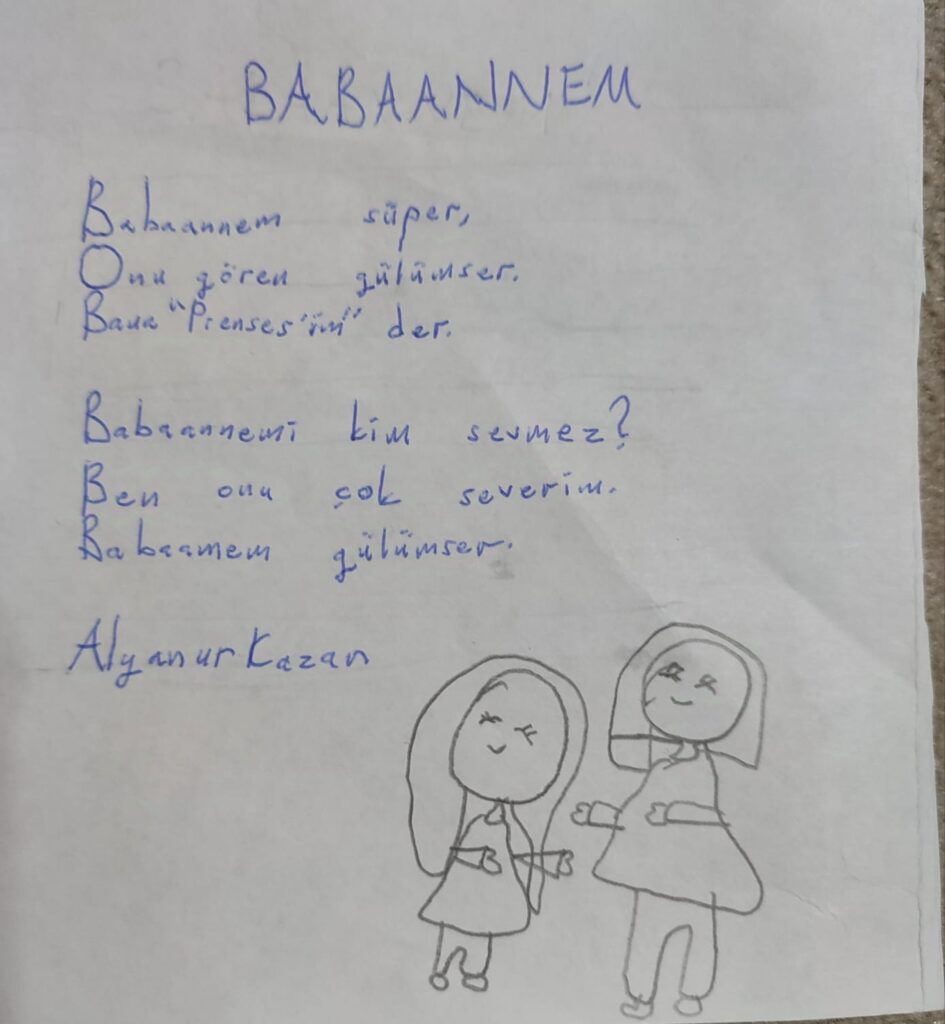 BABAANNEM
Babaannem süper,
Onu gören gülümser.
Bana "Prenses'im" der.
Babaannemi kim sevmez?
Ben onu çok severim.
Babaannem gülümser.
Alyanur Kazan